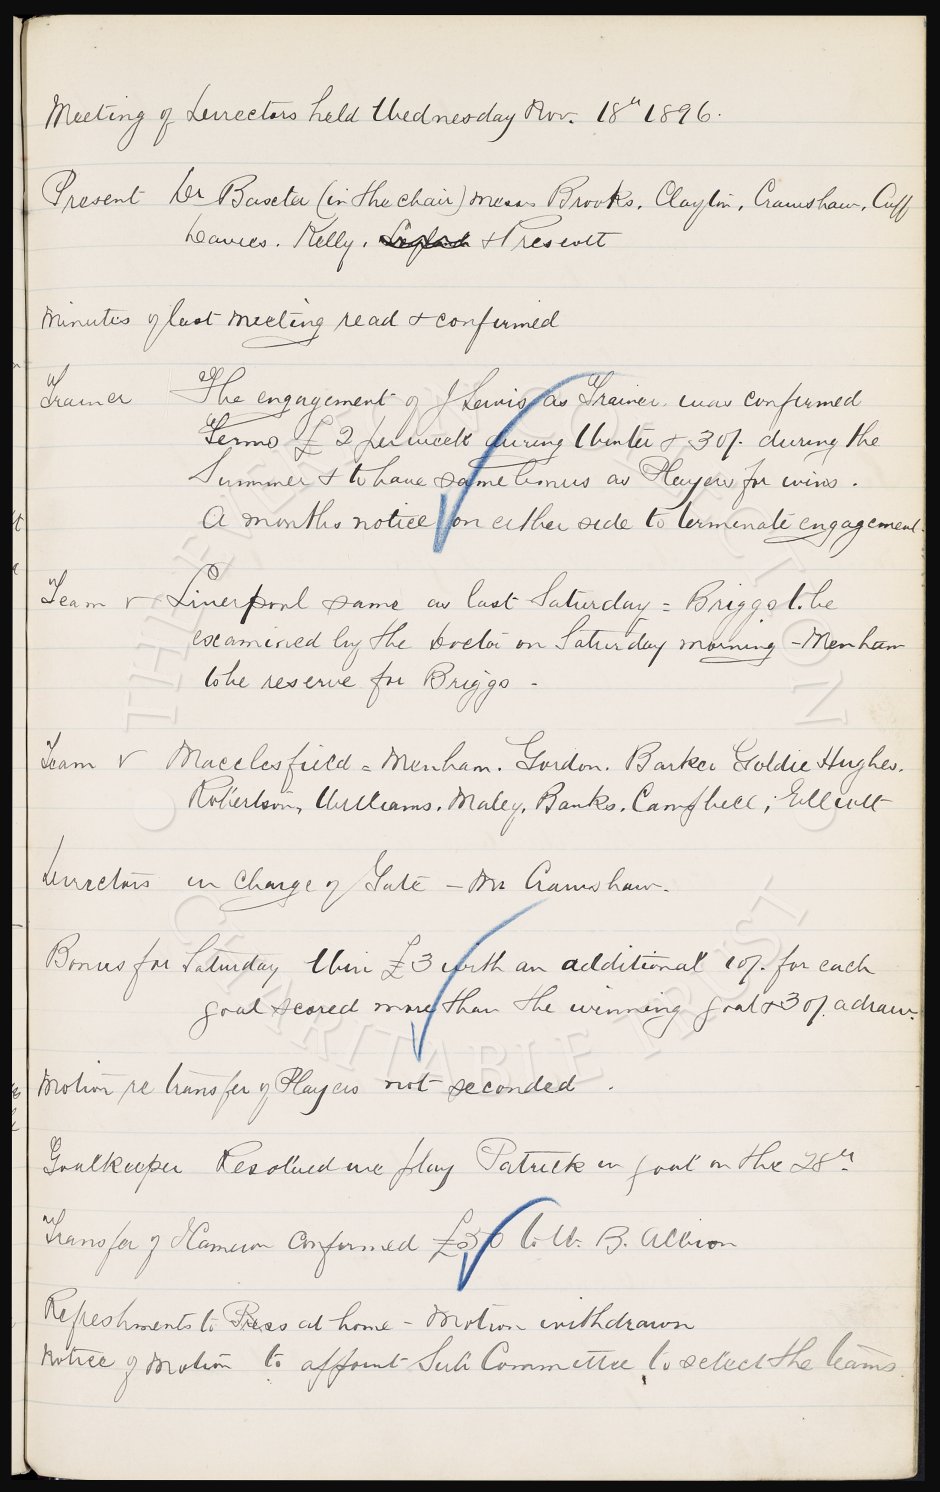 Meeting of Directors held Wednesday Nov. 18th 1896.
Present Dr Baxter (in the chair) Messrs Brooks. Clayton. Cramshaw. Cuff
Davies. Kelly. & Prescott
Minutes of last meeting read & confirmed
Trainer The engagement of J Lewis as Trainer was confirmed
Terms £2 per week during Winter & 30/- during the
Summer & to have same bonus as Players for wins.
A months notice on either side to terminate engagement.
Team v Liverpool same as last Saturday = Briggs to be
examined by the Doctor on Saturday morning - Menham
to be reserve for Briggs -
Team v Macclesfield = Menham. Gordon. Barker Goldie Hughes.
Robertson, Williams. Maley. Banks. Campbell; Elliott
Directors in charge of Gate - Mr Cramshaw.
Bonus for Saturday Win £3 with an additional 10/- for each
goal scored more than the winning goal & 30/- a draw.
Motion re transfer of Players not seconded.
Goalkeeper Resolved we play Patrick in goal on the 28th
Transfer of Cameron confirmed to W. B. Albion
Refreshments to Press at home - Motion withdrawn
Notice of Motion to appoint Sub Committee to select the teams.
THE EVERTON COLLECTION
CHARITABLE TRUST